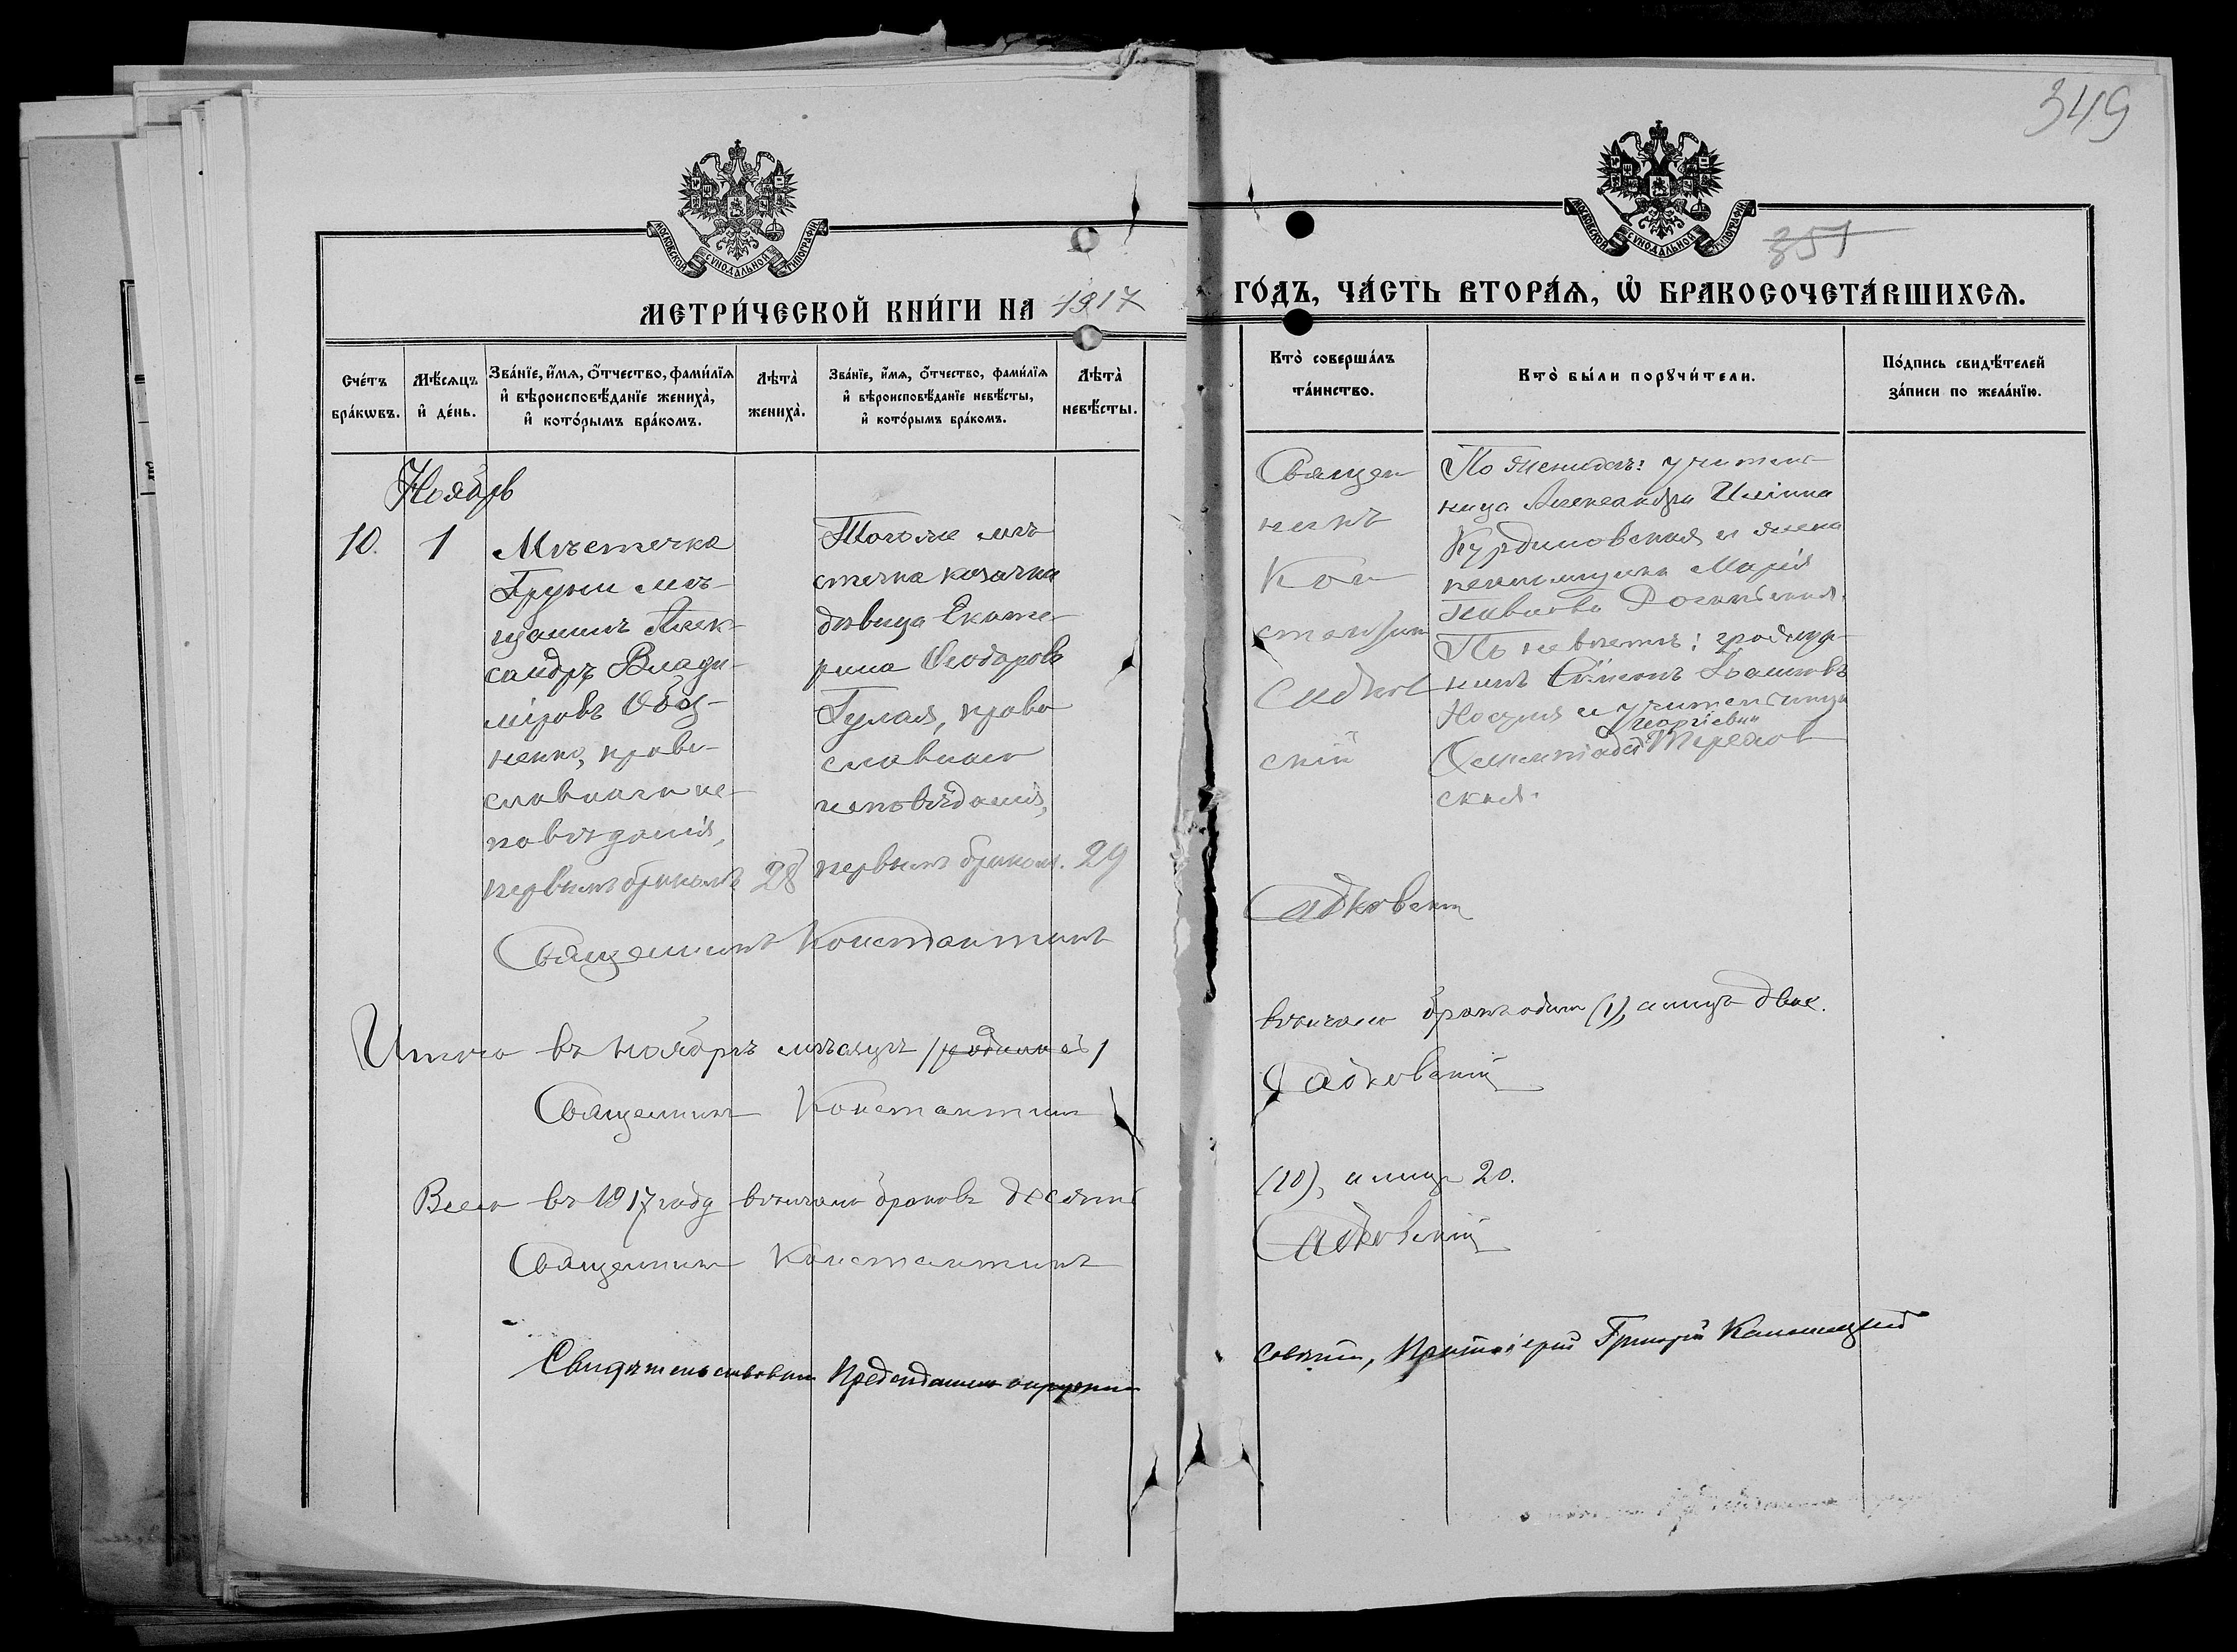 349
МОСКОВСКОЙ СУНОДАЛЬНОЙ ТИПОГРАФІИ
МОСКОВСКОЙ СУНОДАЛЬНОЙ ТИПОГРАФІИ
351
МЕТРИ́ЧЕСКОЙ КНИ́ГИ НА 1917
ГО́ДЪ, ЧА́СТЬ ВТОРА́Ѧ, Ѽ БРАКОСОЧЕТА́ВШИХСѦ.
Сче́тъ бра́кѡвъ.
Мѣ́сѧцъ и҆ де́нь.
Зва́нїе, и҆́мѧ, ѻ҆́тчество, фами́лїѧ
и҆ вѣроисповѣ́данїе жениха̀,
и҆ кото́рымъ бра́комъ.
Лѣта̀ жениха̀.
Зва́нїе, и҆́мѧ, ѻ҆́тчество, фами́лїѧ
и҆ вѣроисповѣ́данїе невѣ́сты,
и҆ кото́рымъ бра́комъ.
Лѣта̀ невѣ́сты.
Кто̀ соверша́лъ
та́инство.
Кто̀ бы́ли порꙋчи́тели.
По́дпись свидѣ́телей
за́писи по жела́нїю.
Ноябрь
10.
1
Мѣстечка
Груни мѣ-
щанинъ Алек-
сандръ Влади-
міровъ
право-
славнаго ис-
повѣданія,
первымъ бракомъ
28
Того же мѣ-
стечка козачка
дѣвица Екате-
рина Ѳеодорова
Гулая, право
славнаго
исповѣданія,
первымъ бракомъ.
29
Священ
никъ
Кон
стантин
Садков
скій
По женихѣ: учитель-
ница Александра
Курдиновская и жена
Марія
Павлова
По невѣстѣ: гражда-
нинъ Симеонъ Ивановъ
и учительница
Георгіевна
Терехов
ская.
Священникъ Константинъ
Садковскій
Итого въ ноябрѣ мѣсяцѣ
вѣнчано бракъ одинъ (1), а лицъ двое.
Священникъ Константинъ
Садковскій
Всего въ 1917 году вѣнчано браковъ десять
(10), а лицъ 20.
Священникъ Константинъ
Садковскій
Свидѣтельствовалъ Предсѣдатель окружн
совѣта, Протоіерей Григорій